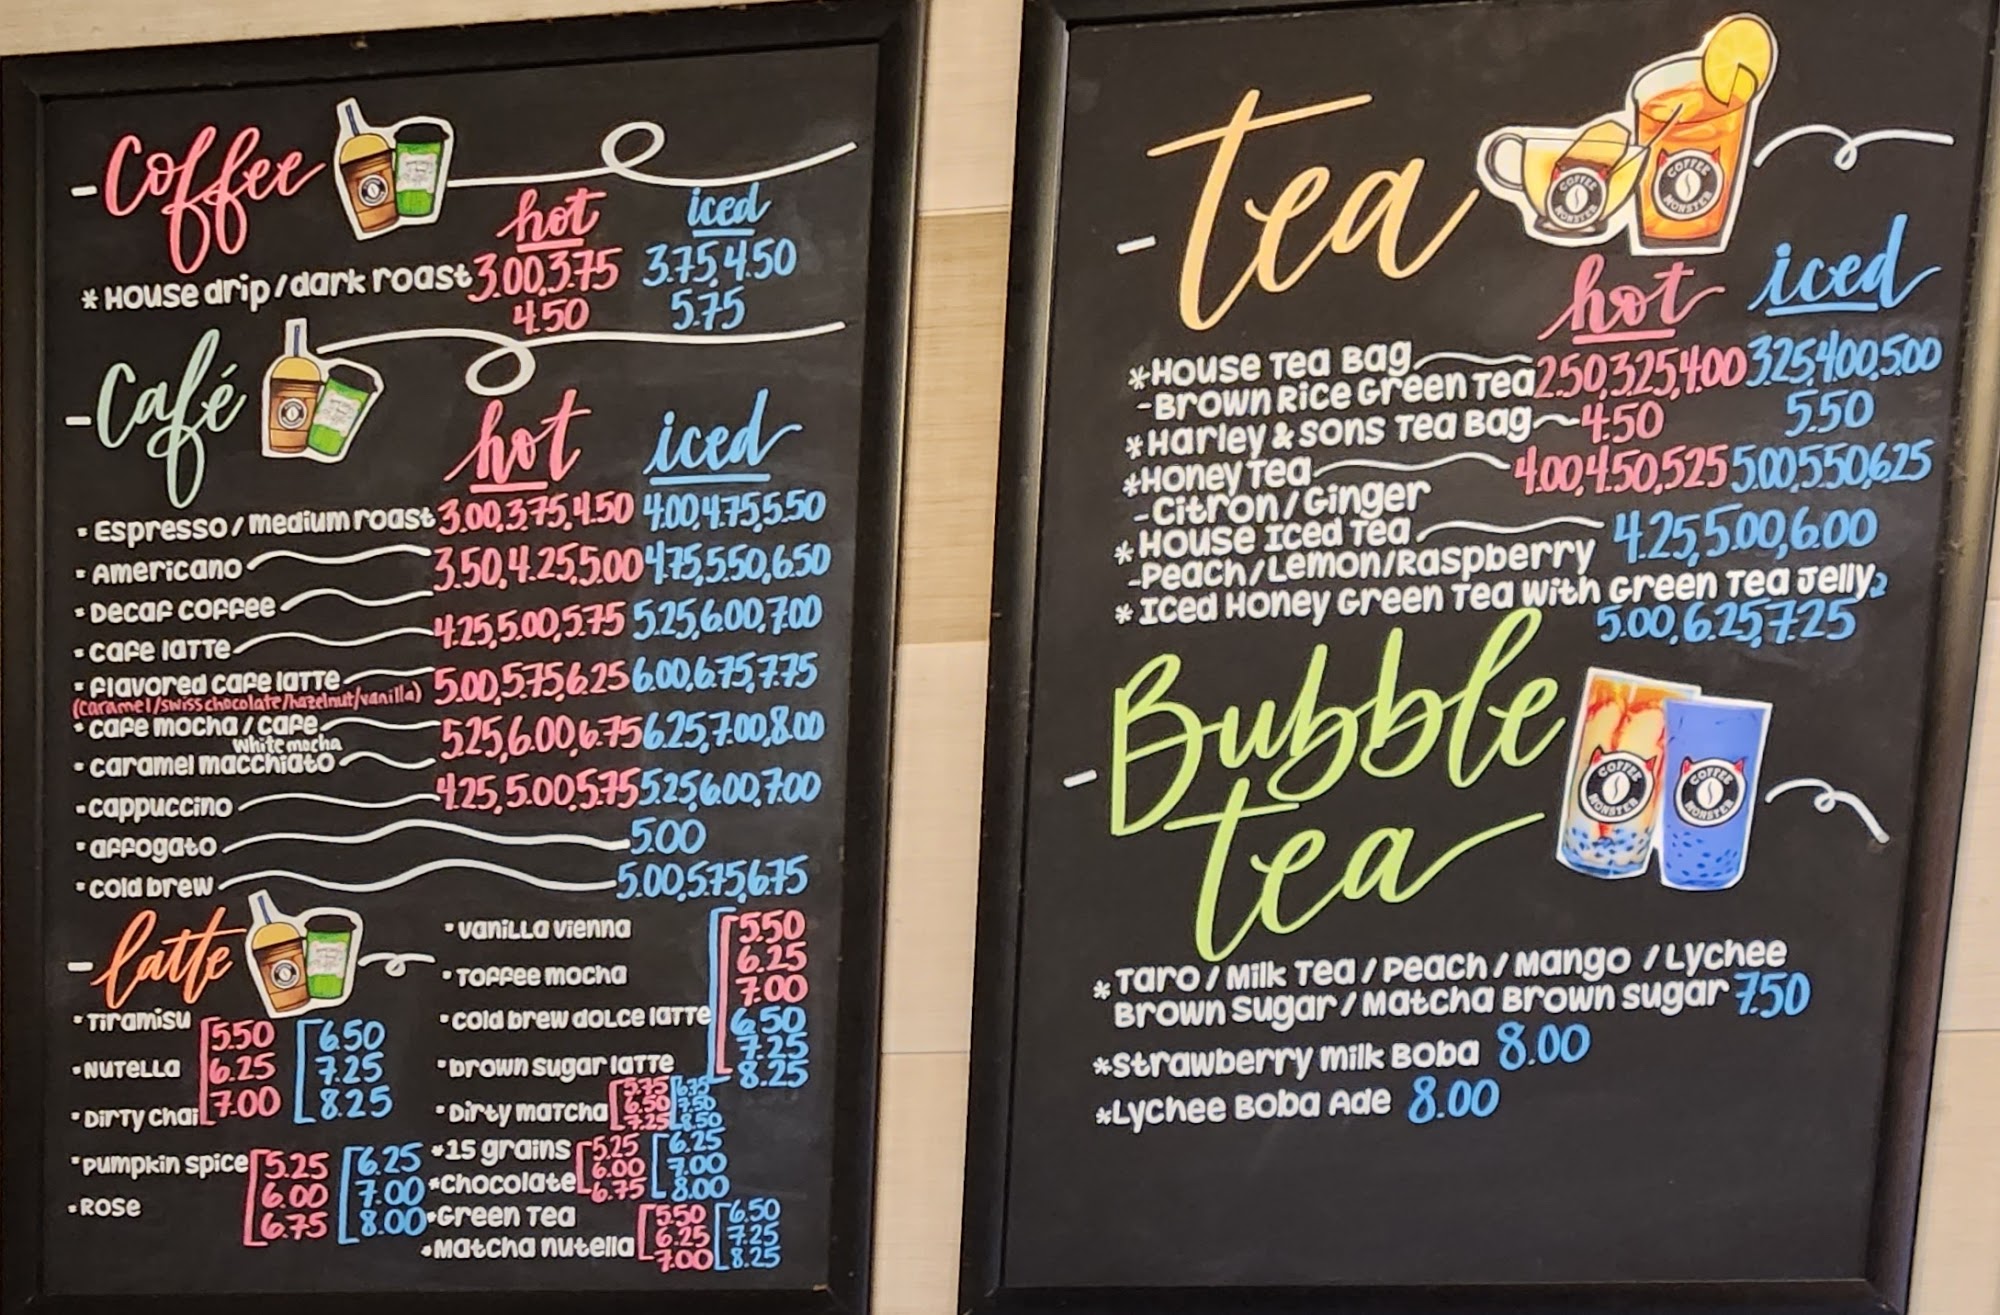 -Coffee
hot iced
* House drip/dark roast 3.00,3.75 3.75,4.50
4.50 5.75
-Café
hot iced
· Espresso/medium roast 3.00,3.75,4.50 4.00,4.75,5.50
· Americano 3.50,4.25,5.00 4.75,5.50,6.50
· Decaf coffee
· cafe latte 4.25,5.00,5.75 5.25,6.00,7.00
· flavored cafe latte 5.00,5.75,6.25 6.00,6.75,7.75
(caramel/swiss chocolate/hazelnut/vanilla)
· cafe mocha/cafe 5.25,6.00,6.75 6.25,7.00,8.00
white mocha
· caramel macchiato
· cappuccino 4.25,5.00,5.75 5.25,6.00,7.00
· affogato 5.00
· cold brew 5.00,5.75,6.75
-latte
· Tiramisu
· Nutella
· Dirty chai
5.50 6.50
6.25 7.25
7.00 8.25
· Pumpkin spice
· Rose
5.25 6.25
6.00 7.00
6.75 8.00
· Vanilla Vienna
· Toffee mocha
· cold brew dolce latte
· brown sugar latte
5.50
6.25
7.00
6.50
7.25
8.25
· Dirty matcha
5.75 6.75
6.50 7.50
7.25 8.50
*15 grains
*Chocolate
5.25 6.25
6.00 7.00
6.75 8.00
*Green Tea
*Matcha nutella
5.50 6.50
6.25 7.25
7.00 8.25
-Tea
COFFEE MONSTER
COFFEE MONSTER
hot iced
*House Tea Bag 2.50,3.25,4.00 3.25,4.00,5.00
-Brown Rice Green Tea
*Harley & sons Tea Bag 4.50 5.50
*Honey Tea 4.00,4.50,5.25 5.00,5.50,6.25
-Citron/Ginger
*House Iced Tea 4.25,5.00,6.00
-Peach/Lemon/Raspberry
* Iced Honey Green Tea with Green Tea Jelly
5.00,6.25,7.25
-Bubble
tea
COFFEE MONSTER
COFFEE MONSTER
*Taro/Milk Tea/Peach/Mango/Lychee
Brown Sugar/Matcha Brown sugar 7.50
*Strawberry milk Boba 8.00
*Lychee Boba Ade 8.00